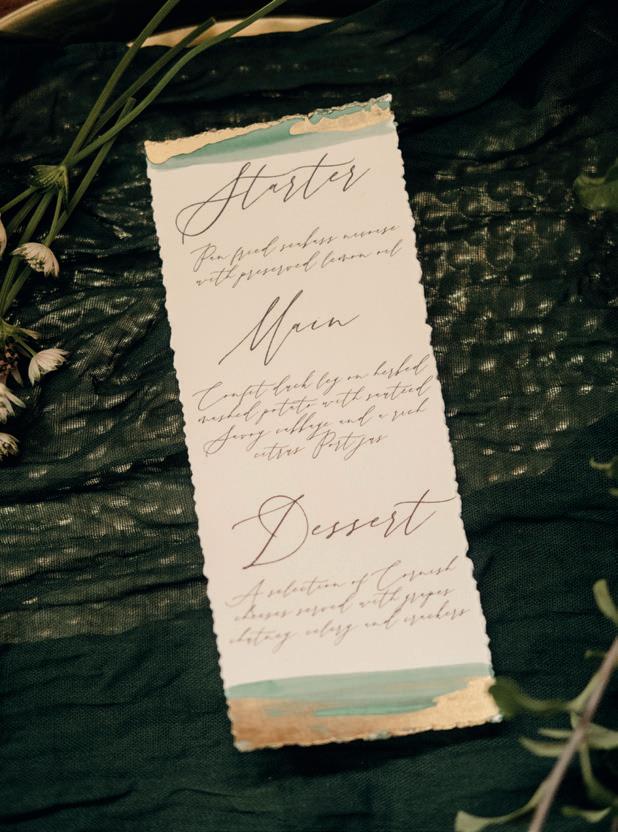 Starter
Pan fried seabass nicoise
with preserved lemon oil
Main
Confit duck leg on herbed
mashed potato with sauteed
Savoy cabbage and a rich
citrus Port jus
Dessert
A selection of Cornish
cheeses served with grapes
chutney celery and crackers